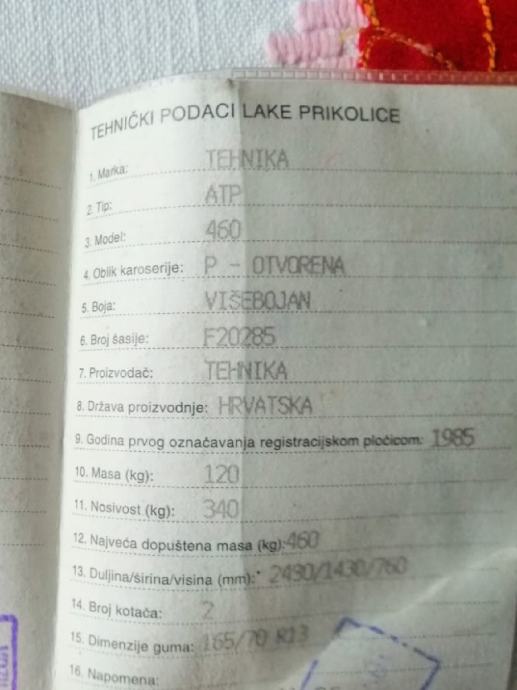 TEHNIČKI PODACI LAKE PRIKOLICE
1. Marka: TEHNIKA
2. Tip: ATP
3. Model: 460
4. Oblik karoserije: P - OTVORENA
5. Boja: VIŠEBOJAN
6. Broj šasije: F20285
7. Proizvođač: TEHNIKA
8. Država proizvodnje: HRVATSKA
9. Godina prvog označavanja registracijskom pločicom: 1985
10. Masa (kg): 120
11. Nosivost (kg): 340
12. Najveća dopuštena masa (kg): 460
13. Duljina/širina/visina (mm):* 2430/1430/760
14. Broj kotača: 2
15. Dimenzije guma: 165/70 R13
16. Napomena: